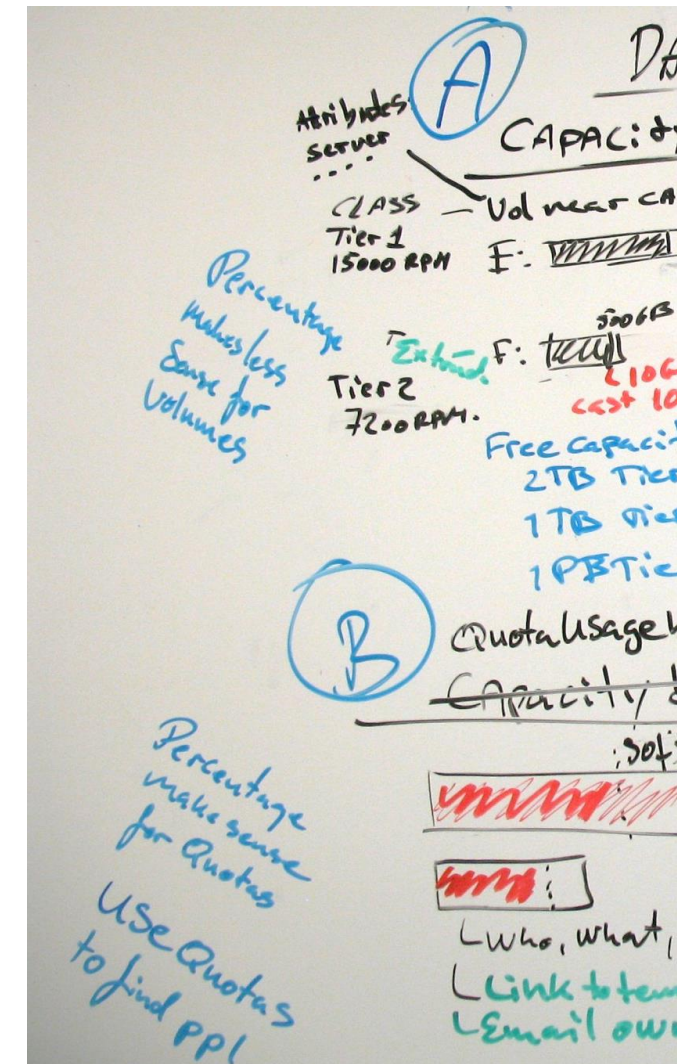 A
DA
CAPACity
Attributes
server
....
CLASS — Vol near CA
Tier 1
15000 RPM
E:
Percentage
makes less
Sense for
Volumes
500GB
Extend.
F:
Tier 2
7200 RPM.
< 10G
Free Capacit
2TB Tier
1 TB Tier
1 PB Tie
B
Quota Usage
Capacity
Percentage
make sense
for Quotas
Use Quotas
to find PPL
Who, What,
Link to tem
Email own